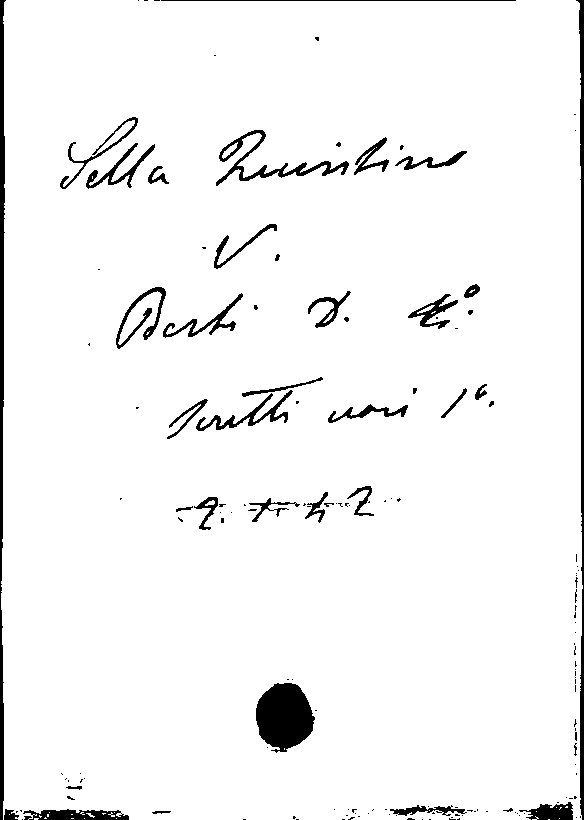 Sella Quintino
V.
Berti D. 
scritti vari 1°.